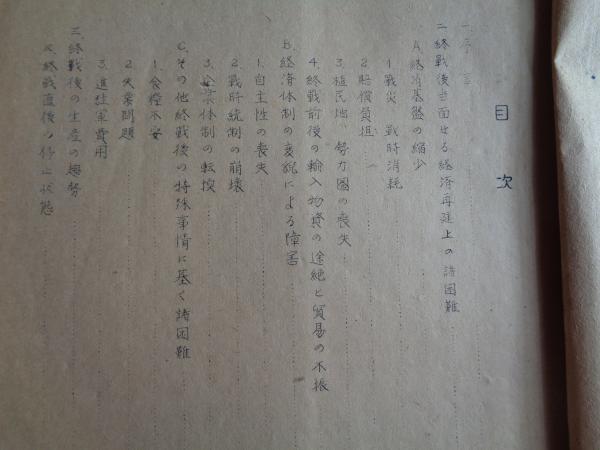 目次
一、序言
二、終戦後当面せる経済再建上の諸困難
A. 経済基盤の縮少
1. 戦災、戦時消耗
2. 賠償負担
3. 植民地、勢力圏の喪失
4. 終戦前後の輸入物資の途絶と貿易の不振
B. 経済体制の変貌による障害
1. 自主性の喪失
2. 戦時統制の崩壊
3. 企業体制の転換
C. その他終戦後の特殊事情に基く諸困難
1. 食糧不安
2. 失業問題
3. 進駐軍費用
三、終戦後の生産の趨勢
A. 終戦直後の停止状態